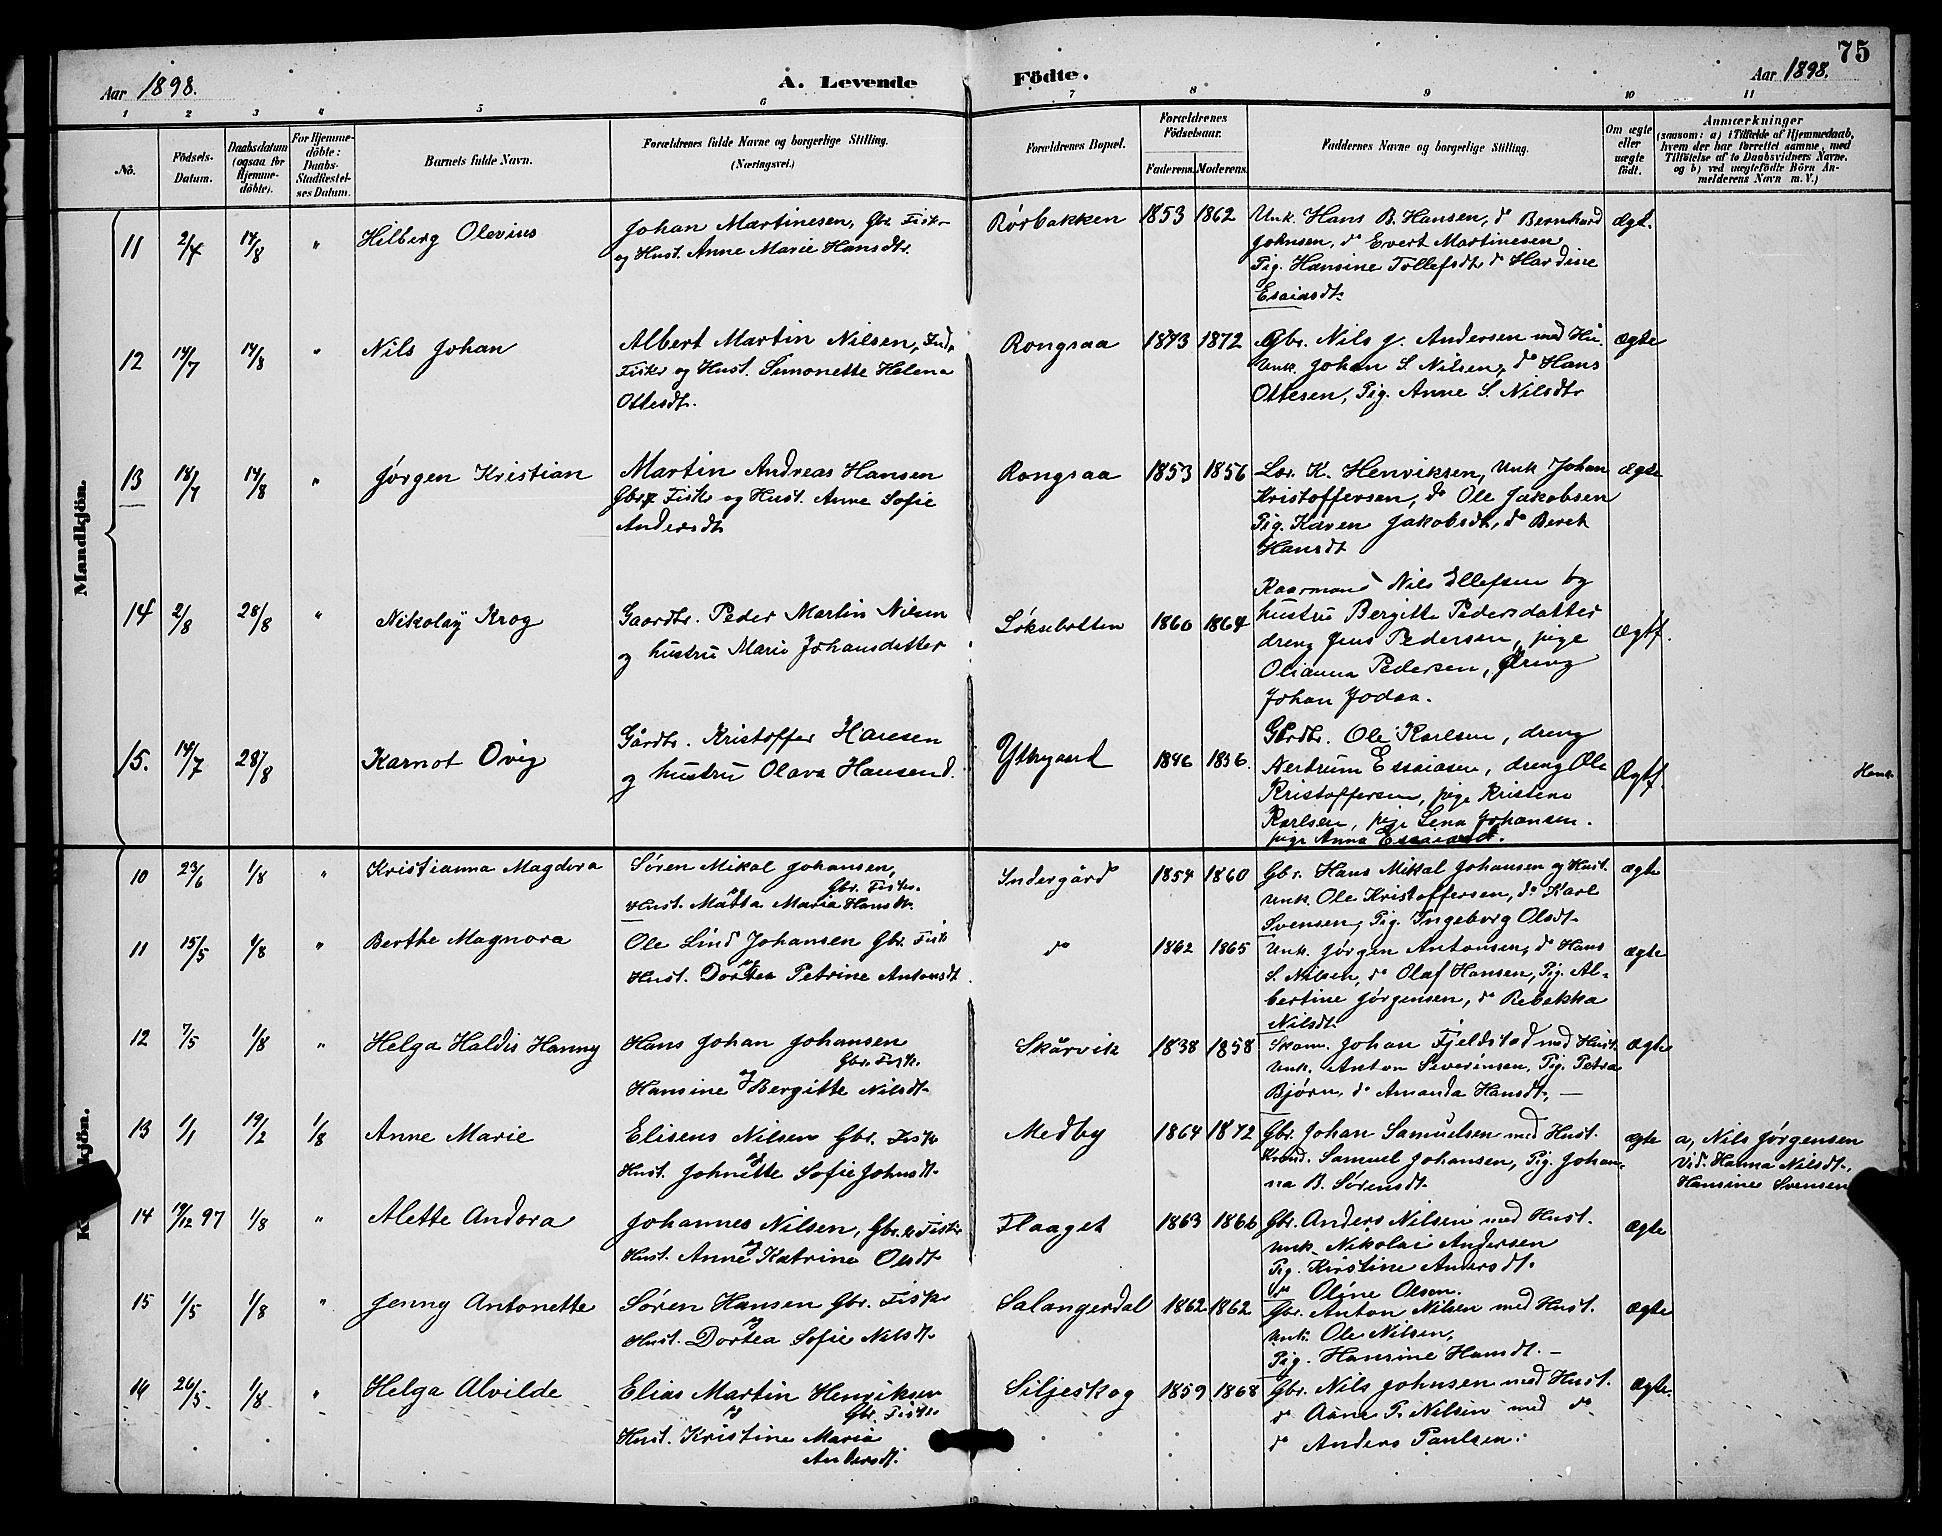 75
Aar 1898.
A. Levende
Födte.
Aar 1898.
1 2 3 4 5 6 7 8 9 10 11
No.
Födsels-Datum.
Daabsdatum (ogsaa for Hjemme-döbte).
For Hjemme-döbte: Daabs-Stadfæstel-ses Datum.
Barnets fulde Navn.
Forældrenes fulde Navne og borgerlige Stilling.
(Næringsvei.)
Forældrenes Bopæl.
Forældrenes Födselsaar.
Faderens. Moderens.
Faddernes Navne og borgerlige Stilling.
Om ægte eller uægte födt.
Anmærkninger
(saasom: a) i Tilfælde af Hjemmedaab,
hvem der har forrettet samme, med
Tilföielse af to Daabsvidners Navne.
og b) ved uægtefödte Börn An-
melderens Navn m. V.)
Mandkjön.
11 2/4 14/8 " Hilberg Olevius
Johan Martinesen, Gbr. Fisk-
og Hust. Anne Marie Hansdtr.
Rörbakken 1853 1862
Unk. Hans B. Hansen, do Bernhard
Johnsen, do Evert Martinesen
Pig. Hansine Tollefsdtr do Hardine
Esaiasdt.
ægt.
12 14/7 14/8 " Nils Johan
Albert Martin Nilsen, Ind.
Fisker og Hust. Simonette Helena
Ottesdt.
Rongsaa 1873 1872
Gbr. Nils J. Andersen med Hu.
Unk. Johan S. Nilsen, do Hans
Ottesen, Pig. Anne S. Nilsdtr
ægte
13 18/7 14/8 " Jørgen Kristian
Martin Andreas Hansen
Gbr. Fisker og Hust. Anne Sofie
Andersdt
Rongsaa 1853 1856
Lör. K. Henriksen, Unk Johan
Kristoffersen, do Ole Jakobsen
Pig. Karen Jakobsdt, do Beret
Hansdt
ægte
14 2/8 28/8 " Nikolaÿ Krog
Gaardbr. Peder Martin Nilsen
og hustru Marie Johansdatter
Løksebotten 1860 1864
Kaarmand Nils Ellefsen og
hustru Bergitte Pedersdatter
dreng Jens Pedersen, pige
Olianna Pedersen, dreng
Johan Jodaa.
ægtf.
15. 14/7 28/8 Karnot Ovig
Gårdbr. Kristoffer Hansen
og hustru Olava Hansend.
Yttregaard 1846 1856.
Gårdbr. Ole Karlsen, dreng
Nertrum Essaiasen, dreng Ole
Kristoffersen, pige Kristene
Karlsen, pige Lena Johansen.
pige Anna Essaiasd.
Ægtf.
10 23/6 1/8 " Kristianna Magdora
Søren Mikal Johansen,
Gbr. Fisker.
og
Hust. Matta Maria Hansdt.
Indergård 1854 1860
Gbr. Hans Mikal Johansen og Hust.
Unk. Ole Kristoffersen, do Karl
Svensen, Pig. Ingeborg Olsdt.
ægte
11 15/5 1/8 " Berthe Magnora
Ole Lind Johansen Gbr. Fisk
og
Hust. Dortea Petrine Antonsdt
do 1862 1865
Unk. Jørgen Antonsen, do Hans
S. Nilsen, do Olaf Hansen, Pig. Al-
bertine Jørgensen, do Rebekka
Nilsdt.
ægte
12 7/5 1/8 " Helga Haldis Hanny
Hans Johan Johansen
Gbr. Fisk.
og
Hansine Bergitte Nilsdt.
Skårvik 1838 1858
Skom. Johan Fjeldstad med Hust.
Unk. Anton Severinsen, Pig. Petra
Bjørn, do Amanda Hansdt. —
ægte
13 1/1 19/2 1/8 Anne Marie
Eliseus Nilsen Gbr. Fisk
og
Hust. Johnette Sofie Johnsdt.
Medby 1864 1872
Gbr. Johan Samuelsen med Hust.
Samuel Johansen, Pig. Johan-
na B. Sørensdt.
ægte
a, Nils Jørgensen
Vid. Hanna Nilsdt.,
Hansine Svensen
14 19/12 97 1/8 " Alette Andora
Johannes Nilsen, Gbr. & Fisker
og
Hust. Anne Katrine Olsdt
Flaaget 1863 1866
Gbr. Anders Nilsen med Hust.
Unk. Nikolai Andersen
Pig. Kirstine Andersdt.
do Oline Olsen.
ægte
15 1/5 1/8 " Jenny Antonette
Søren Hansen Gbr. Fisk
og
Hust. Dortea Sofie Nilsdt.
Salangerdal 1862 1862
Gbr. Anton Nilsen med Hust.
Unk. Ole Nilsen,
Pig. Hansine Hansdt. —
ægte
16 26/5 1/8 " Helga Alvilde
Elias Martin Henriksen
Gbr. Fisker
og
Hust. Kristine Maria
Andersdt.
Siljeskog 1859 1868
Gbr. Nils Johnsen med Hust.
do Arne P. Nilsen med do
do Anders Paulsen.
ægte.